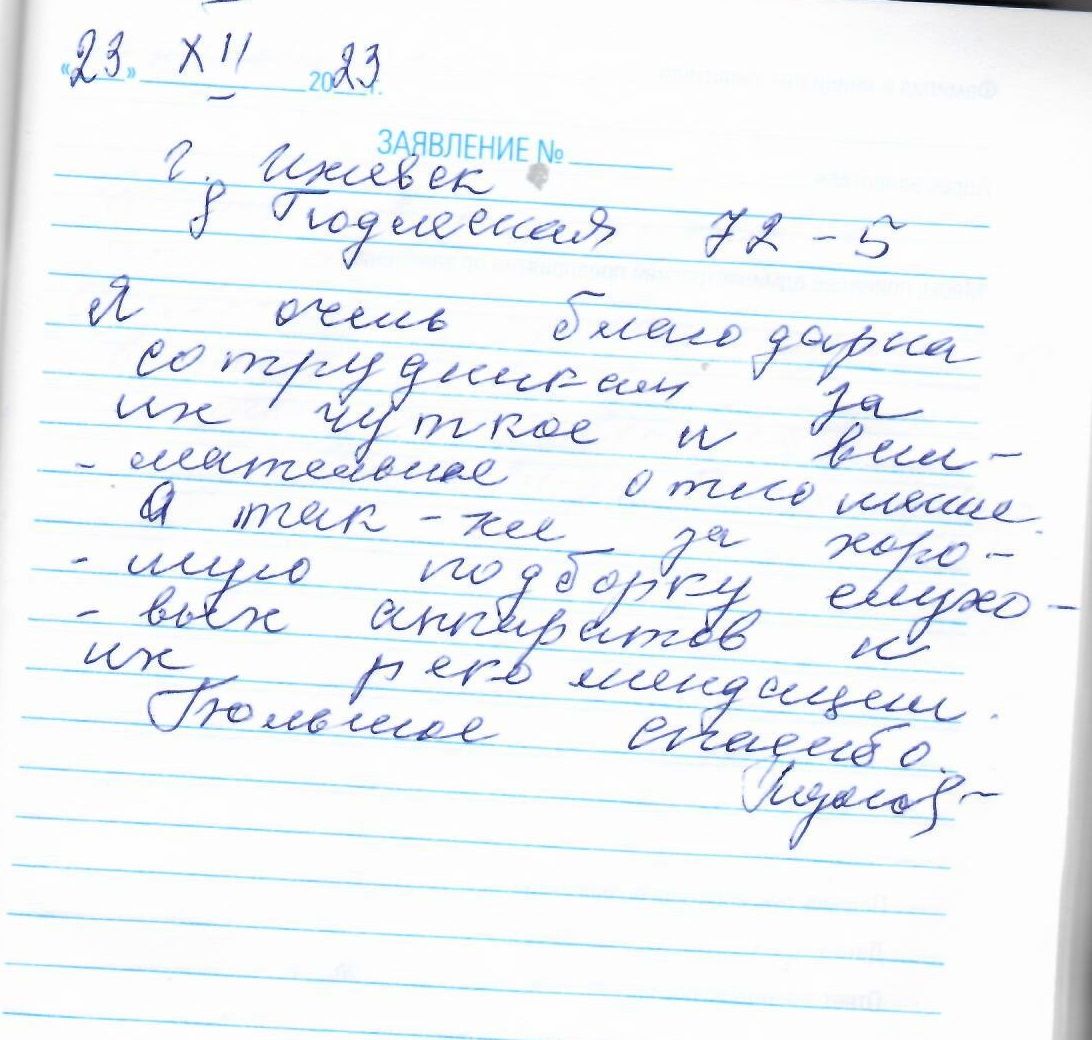 «23» XII 2023 г.
ЗАЯВЛЕНИЕ №
г. Ижевск
Подлесная 72-5
Я очень благодарна
сотрудникам за
их чуткое и вни-
-мательное отношение.
А так-же за хоро-
-шую подборку слухо-
-вых аппаратов и
их рекомендации.
Большое спасибо.